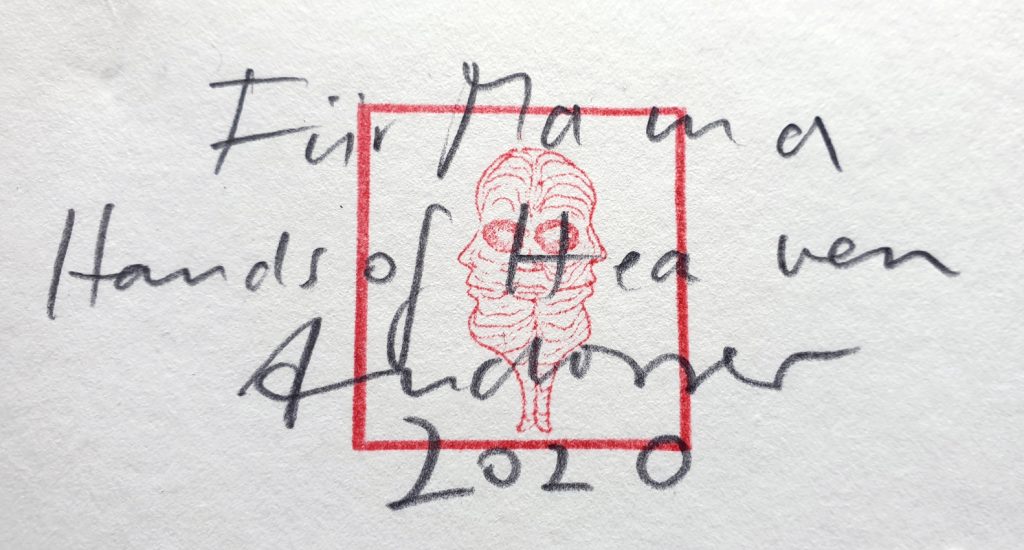 Für Mama
Hands of Heaven
Andosser
2020